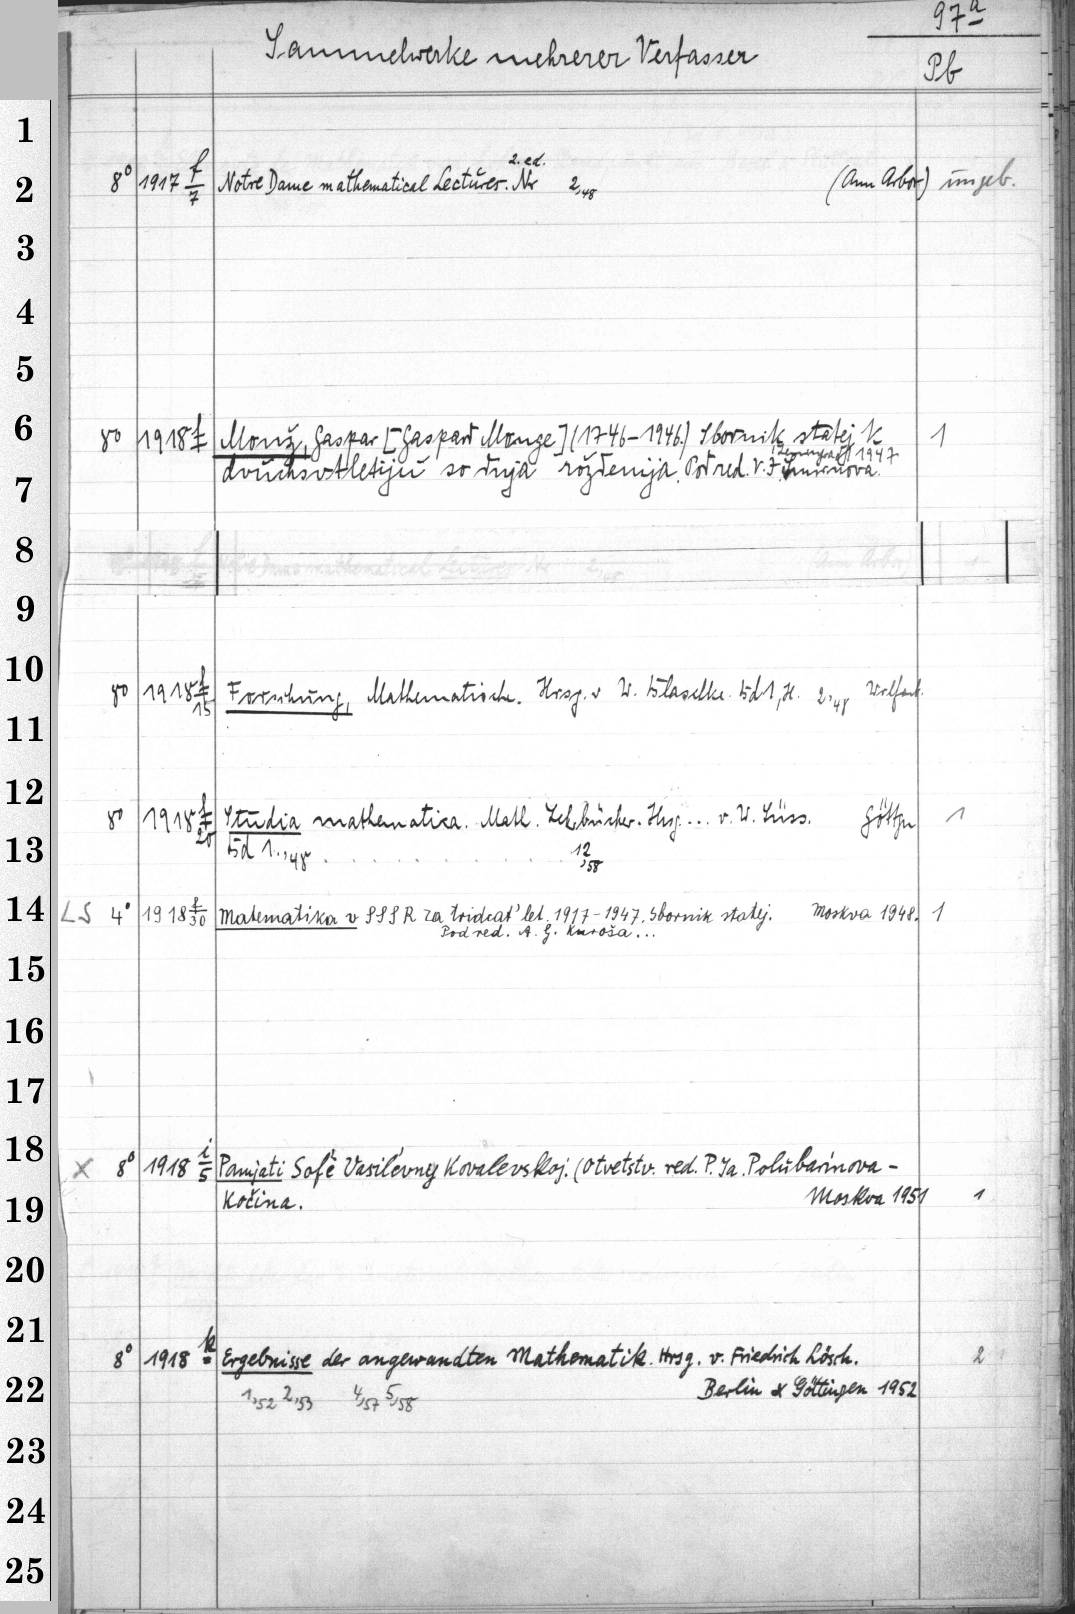 97a
Sammelwerke mehrerer Verfasser
Pb
1
2. ed.
2 8° 1917 f/7 Notre Dame mathematical Lectures. Nr 2,48 (Ann Arbor) ungeb.
3
4
5
6 8° 1918 f Monž, Gaspar [Gaspard Monge] (1746-1946.) Sbornik statej k 1
(Leningrad) 1947
7 dvuchsotletiju so dnja roždenija. Pod red. V. I. Smirnova.
8 Notre Dame mathematical Lectures Nr 2,48 (Ann Arbor) 1
9
10 8° 1918 f/15 Forschung, Mathematische. Hrsg. v W. Blaschke. Bd 1, H. 2,48
11
12 8° 1918 f/20 Studia mathematica. Math. Lehrbücher. Hrsg... v. W. Süss. Göttgn 1
13 Bd 1.,48 . . . . . . . . . . . 12,58
14 LS 4° 1918 f/30 Matematika v SSSR za tridcat' let. 1917-1947. Sbornik statej. Moskva 1948. 1
Pod red. A. G. Kuroša...
15
16
17
18 X 8° 1918 i/5 Pamjati Sof'e Vasil'evney Kovalevskoj. (Otvetstv. red. P. Ja. Polubarinova-
19 Kočina. Moskva 1951 1
20
21 8° 1918 k Ergebnisse der angewandten Mathematik. Hrsg. v. Friedrich Lösch. 2
22 1,52 2,53 4,57 5,58 Berlin & Göttingen 1952
23
24
25